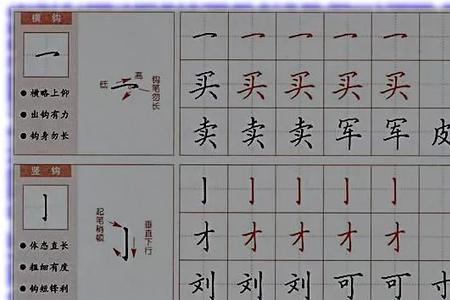 横钩
乛
横略上仰
出钩有力
钩身勿长
低 高 钩笔勿长
乛 乛 乛 乛 乛
买 买 买 买 买
卖 卖 卖 军 军 皮
竖钩
亅
体态直长
粗细有度
钩短锋利
起笔稍顿
垂直下行
亅 亅 亅 亅 亅
才 才 才 才 才
刘 刘 刘 可 可 寸